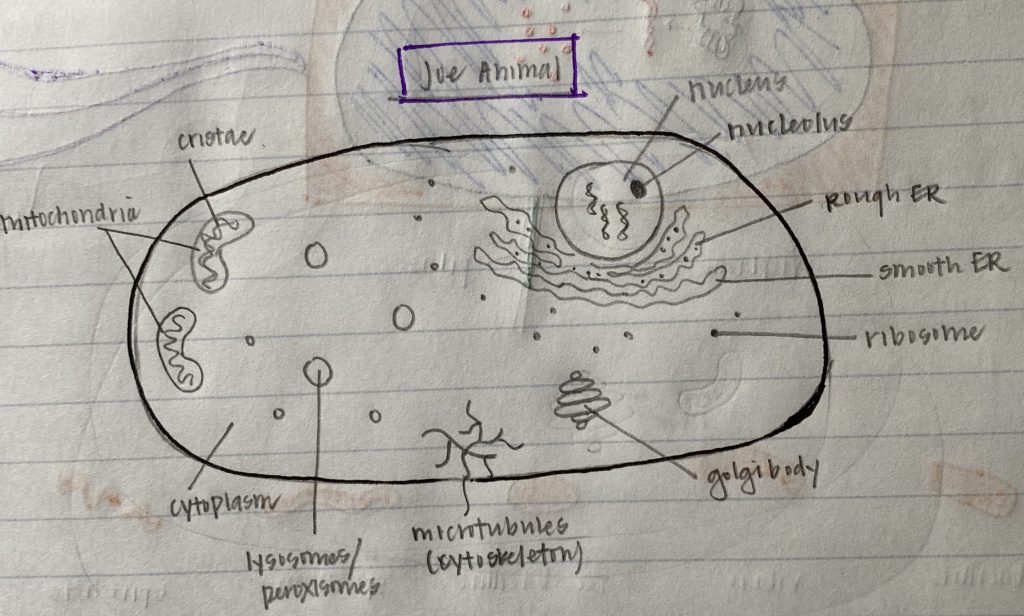 Joe Animal
nucleus
nucleolus
cristae
mitochondria
Rough ER
smooth ER
ribosome
golgi body
cytoplasm
lysosomes/
peroxisomes
microtubules
(cytoskeleton)